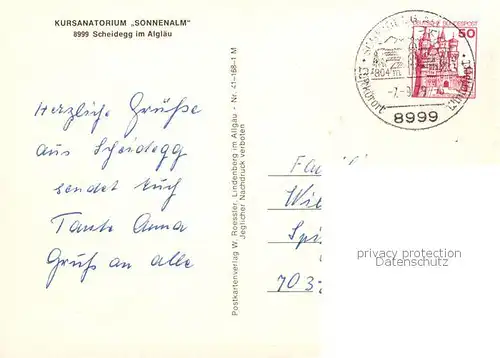 KURSANATORIUM „SONNENALM"
8999 Scheidegg im Algläu
Herzliche Grüße
aus Scheidegg
sendet Euch
Tante Anna
Gruß an alle
Postkartenverlag W. Roessler, Lindenberg im Allgäu - Nr. 41-168-1 M
Jeglicher Nachdruck verboten
BUNDESPOST
50
804 m
Kurkurort
8999
Fa
Wie
Spi
703
privacy protection
Datenschutz